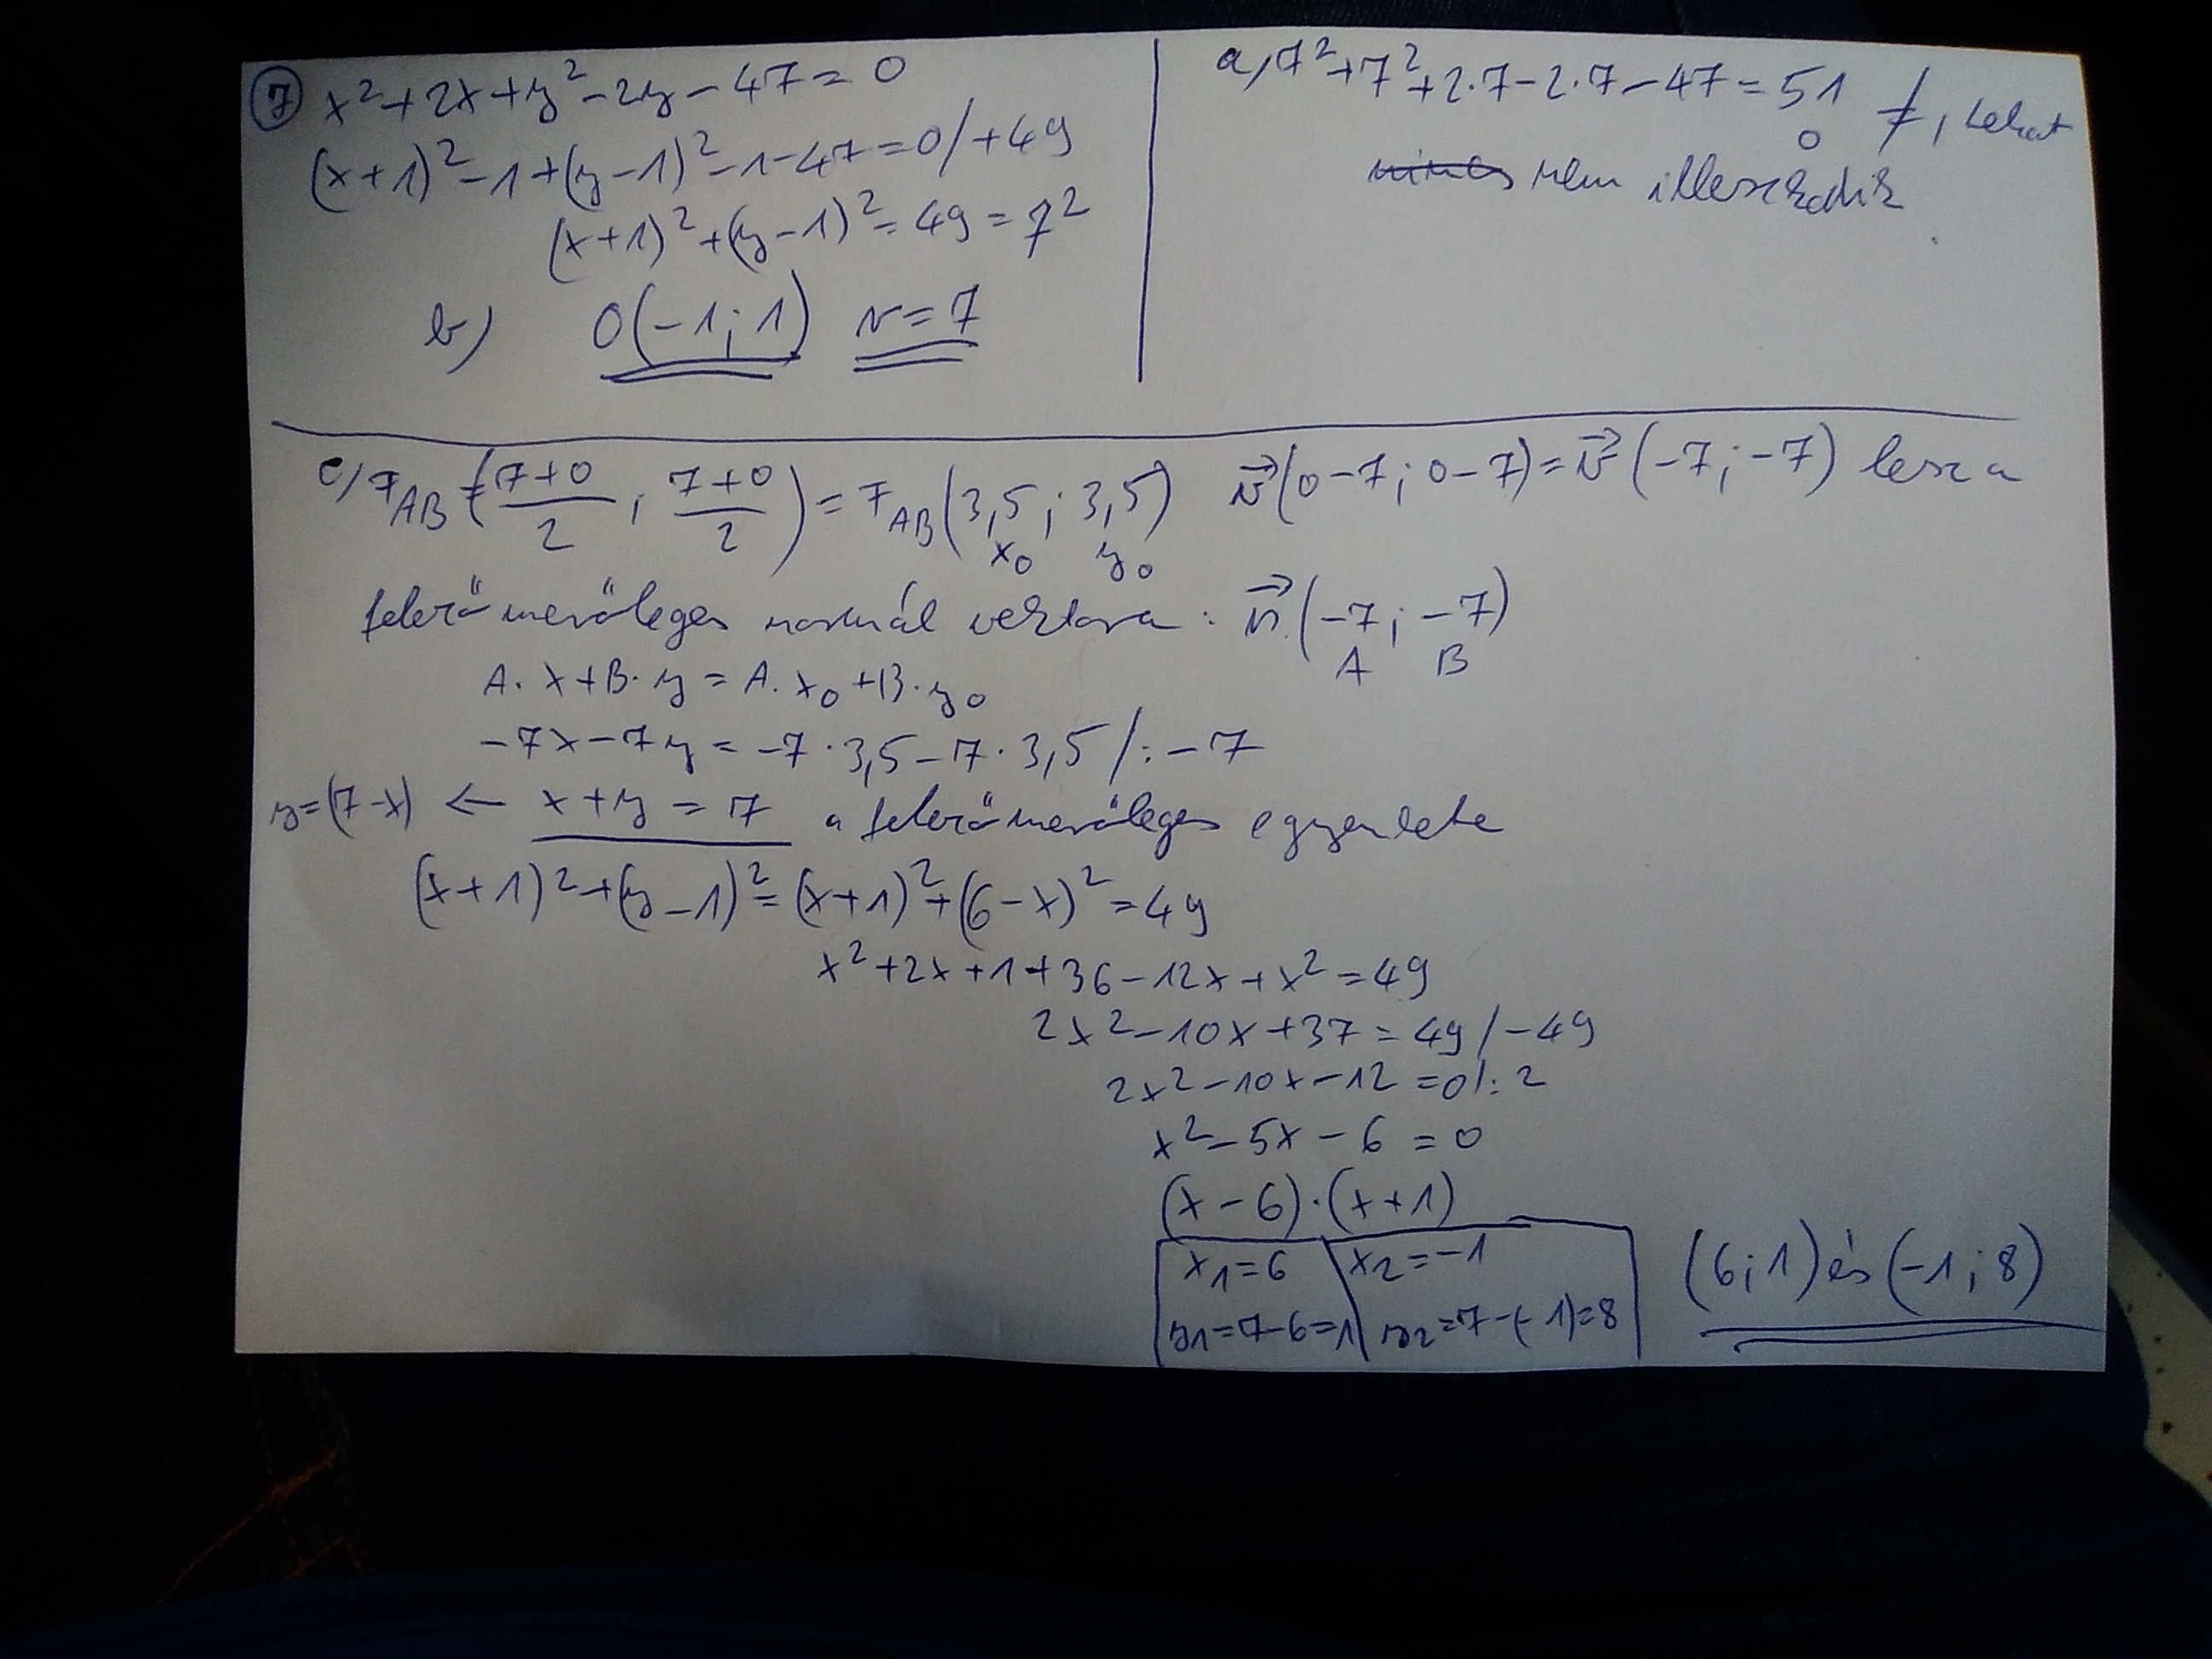 ⑦ x²+2x+y²-2y-47=0
(x+1)²-1+(y-1)²-1-47=0/+49
(x+1)²+(y-1)²=49=7²
b) O(-1;1) r=7
a, 7²+7²+2·7-2·7-47=51 ≠ 0, tehát
nem illeszkedik
c) F_AB(7+0/2; 7+0/2)=F_AB(3,5; 3,5) v⃗(0-7; 0-7)=v⃗(-7; -7) lesz a
x₀ y₀
felezőmerőleges normál vektora: n⃗(-7; -7)
A B
A·x+B·y=A·x₀+B·y₀
-7x-7y=-7·3,5-7·3,5/:-7
y=(7-x) ← x+y=7 a felezőmerőleges egyenlete
(x+1)²+(y-1)²=(x+1)²+(6-x)²=49
x²+2x+1+36-12x+x²=49
2x²-10x+37=49/-49
2x²-10x-12=0/:2
x²-5x-6=0
(x-6)·(x+1)
x₁=6 x₂=-1
y₁=7-6=1 y₂=7-(-1)=8
(6;1) és (-1;8)